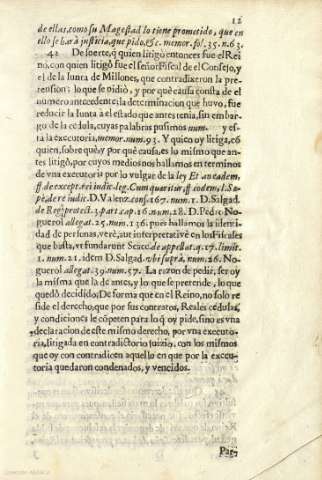 12
de ellas, como su Magestad lo tiene prometido, que en
ello se hará justicia, que pido, &c. memor. fol. 35. n. 63.
42 De suerte, q̃ quien litigò entonces fue el Rei
no, con quien litigó fue el señor Fiscal de el Consejo, y
el de la Iunta de Millones, que contradixeron la pre-
tension: lo que se pidiò, y por què causa consta de el
numero antecedente: la determinacion que huvo, fue
reducir la Iunta à el estado que antes tenia, sin embar-
go de la cedula, cuyas palabras pusimos num. y es-
ta la executoria, memor. num. 93. Y quien oy litiga, cõ
quien, sobre què, y por què causa, es lo mismo que an-
tes litigò, por cuyos medios nos hallamos en terminos
de vna executoria por lo vulgar de la ley Et an eadem,
ff. de except. rei iudic. leg. Cum quæritur, ff. eodem, l. Sæ-
pè, de re iudic. D. Valenz. cons. 167. num. 1. D. Salgad.
de Reg. protect. 3. part. cap. 16. num. 18. D. Pedro No-
guerol allegat. 25. num. 136. pues hallamos la identi-
dad de personas, verè, aut interpretativè en los Fiscales
que basta, vt fundarunt Scacc. de appellat. q. 17. limit.
1. num. 21. idem D. Salgad. vbi suprà, num. 26. No-
guerol allegat. 39. num. 57. La razon de pedir, ser oy
la misma que la de antes, y lo que se pretende, lo que
quedò decidido; De forma que en el Reino, no solo re
side el derecho, que por sus contratos, Reales cedulas,
y condiciones le cõpeten para lo q̃ oy pide, sino es vna
declaracion de este mismo derecho, por vna executo-
ria, litigada en contradictorio juizio, con los mismos
que oy con contradicen aquello en que por la execu-
toria quedaron condenados, y vencidos.